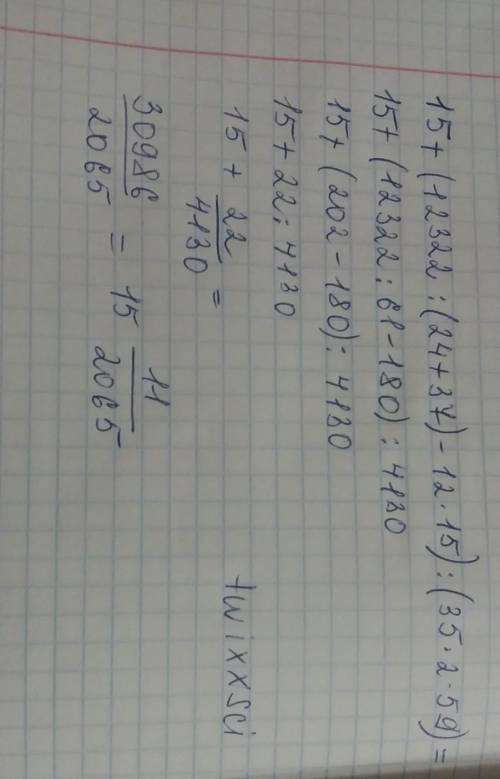 15+(12322:(24+37)-12·15):(35·2·59)=
15+(12322:61-180):4130
15+(202-180):4130
15+22:4130
15+22/4130=
30986/2065=15 11/2065
twixxsci